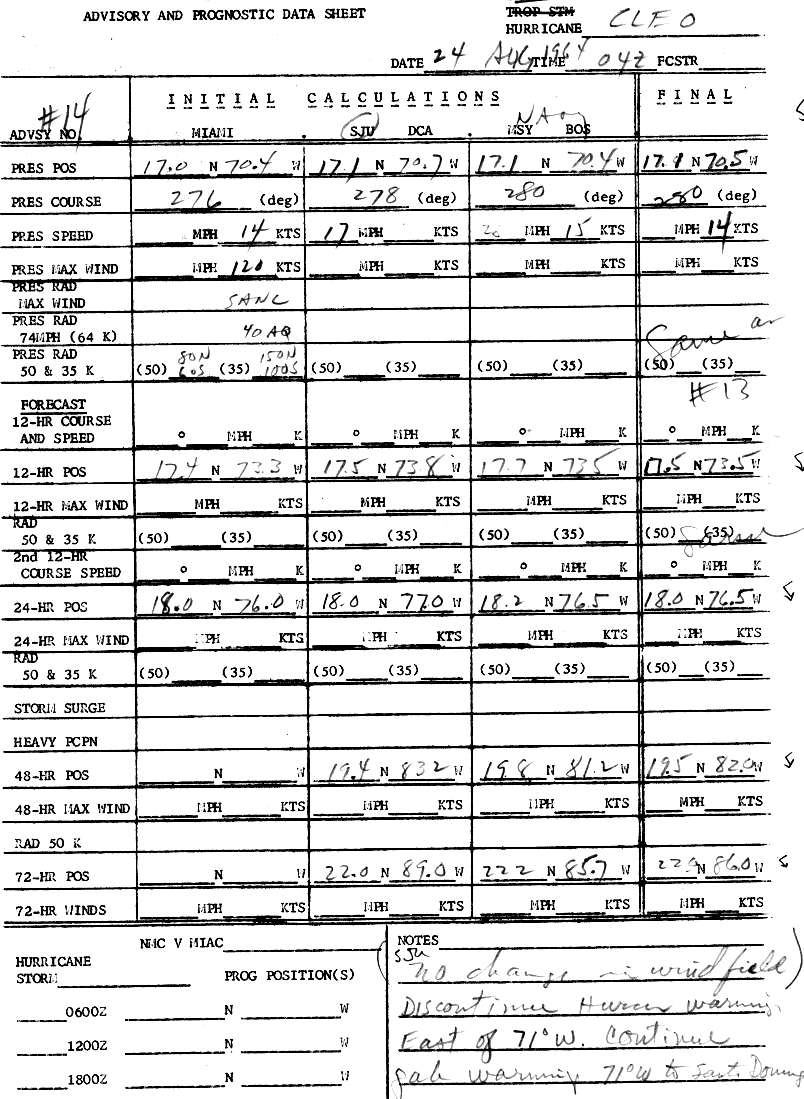 ADVISORY AND PROGNOSTIC DATA SHEET
TROP STM
HURRICANE CLEO
DATE 24 AUG 1964 TIME 04Z FCSTR
#14
INITIAL CALCULATIONS FINAL
ADVSY NO. MIAMI SJU DCA MSY BOS
PRES POS 17.0 N 70.4 W 17.1 N 70.7 W 17.1 N 70.4 W 17.1 N 70.5 W
PRES COURSE 276 (deg) 278 (deg) 280 (deg) 280 (deg)
PRES SPEED MPH 14 KTS 17 MPH KTS MPH 15 KTS MPH 14 KTS
PRES MAX WIND MPH 120 KTS MPH KTS MPH KTS MPH KTS
PRES RAD
MAX WIND
PRES RAD
74MPH (64 K) 40 AQ Same as
PRES RAD 80N 150N
50 & 35 K (50) 60S (35) 100S (50) (35) (50) (35) (50) (35)
#13
FORECAST
12-HR COURSE
AND SPEED ° MPH K ° MPH K ° MPH K ° MPH K
12-HR POS 17.4 N 73.3 W 17.5 N 73.8 W 17.7 N 73.5 W 17.5 N 73.5 W
12-HR MAX WIND MPH KTS MPH KTS MPH KTS MPH KTS
RAD
50 & 35 K (50) (35) (50) (35) (50) (35) (50) (35)
2nd 12-HR
COURSE SPEED ° MPH K ° MPH K ° MPH K ° MPH K
24-HR POS 18.0 N 76.0 W 18.0 N 77.0 W 18.2 N 76.5 W 18.0 N 76.5 W
24-HR MAX WIND MPH KTS MPH KTS MPH KTS MPH KTS
RAD
50 & 35 K (50) (35) (50) (35) (50) (35) (50) (35)
STORM SURGE
HEAVY PCPN
48-HR POS N W 19.4 N 83.2 W 19.8 N 81.2 W 19.5 N 82.0 W
48-HR MAX WIND MPH KTS MPH KTS MPH KTS MPH KTS
RAD 50 K
72-HR POS N W 22.0 N 89.0 W 22.2 N 85.7 W 22.0 N 86.0 W
72-HR WINDS MPH KTS MPH KTS MPH KTS MPH KTS
NMC V MIAC
HURRICANE
STORM PROG POSITION(S)
0600Z N W
1200Z N W
1800Z N W
NOTES
SJU
(no change in wind field)
Discontinue Hurcn warning
East of 71°W. Continue
gale warning 71°W to Santo Doming